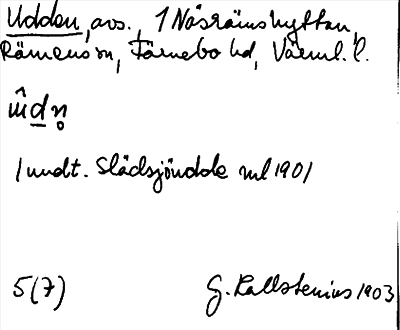 Udden, avs., 1 Näsrämshyttan,
Rämens sn, Färnebo hd, Värml. l.
ûdn̥
/undt. Slädsjöudde ml 1901
5(7) G. Kallstenius 1903